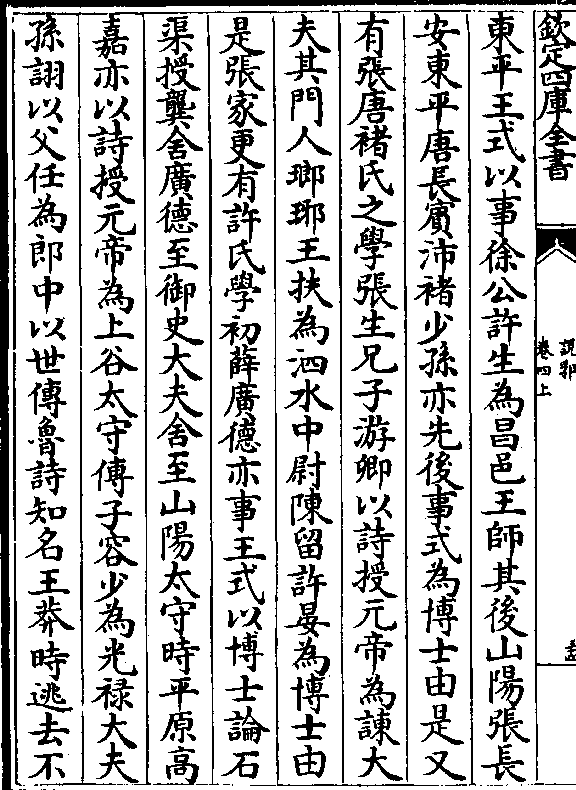 欽定四庫全書
說郛
卷四上
東平王式以事徐公許生為昌邑王師其後山陽張長
安東平唐長賔沛褚少孫亦先後事式為博士由是又
有張唐褚氏之學張生兄子游卿以詩授元帝為諫大
夫其門人瑯琊王扶為泗水中尉陳留許晏為博士由
是張家更有許氏學初薛廣德亦事王式以博士論石
渠授龔舍廣德至御史大夫舍至山陽太守時平原髙
嘉亦以詩授元帝為上谷太守傳子容少為光禄大夫
孫詡以父任為郎中以世傳魯詩知名王莽時逃去不